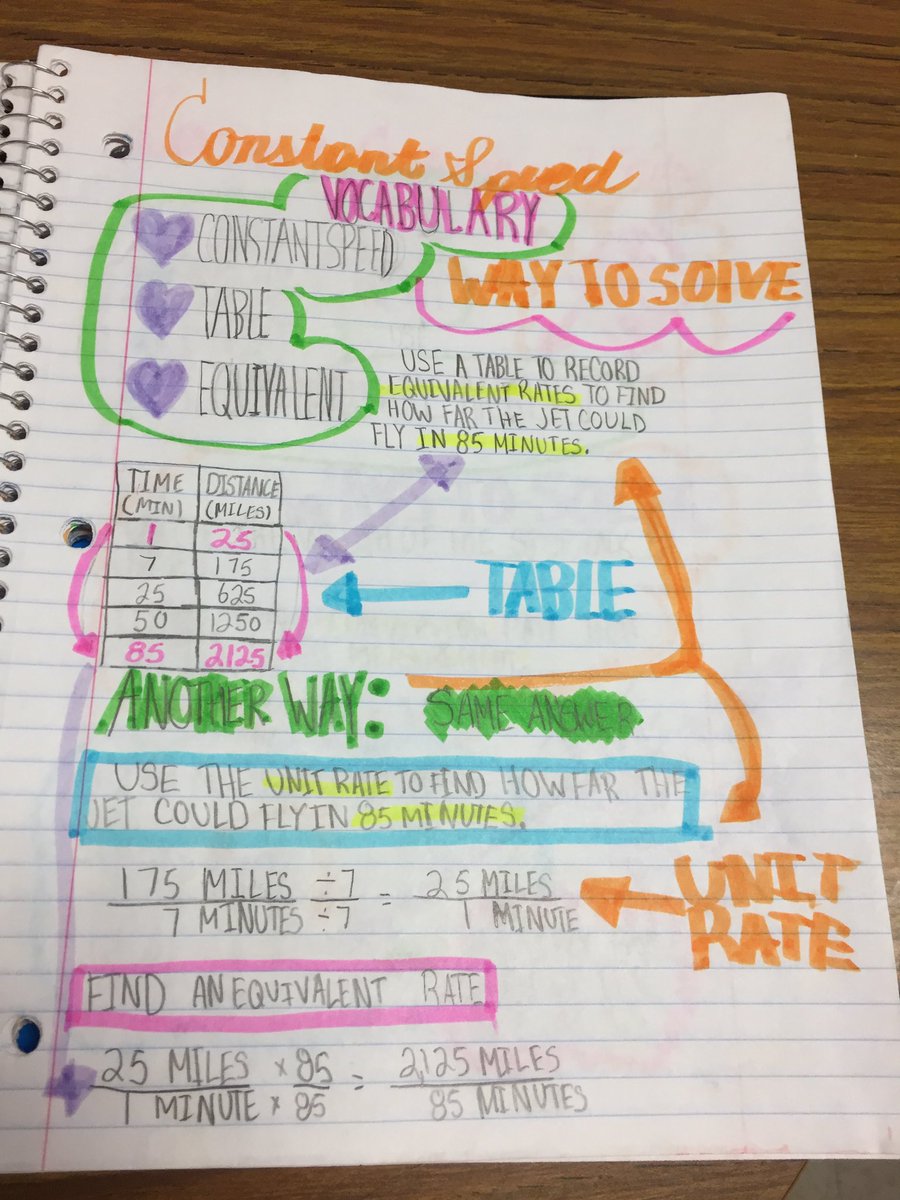 Constant Speed
VOCABULARY
CONSTANT SPEED
TABLE
EQUIVALENT
WAY TO SOLVE
USE A TABLE TO RECORD
EQUIVALENT RATES TO FIND
HOW FAR THE JET COULD
FLY IN 85 MINUTES.
TIME (MIN) DISTANCE (MILES)
1 25
7 175
25 625
50 1250
85 2125
TABLE
ANOTHER WAY: SAME ANSWER
USE THE UNIT RATE TO FIND HOW FAR THE
JET COULD FLY IN 85 MINUTES.
175 MILES ÷7 = 25 MILES
7 MINUTES ÷7 1 MINUTE
UNIT
RATE
FIND AN EQUIVALENT RATE
25 MILES × 85 = 2,125 MILES
1 MINUTE × 85 85 MINUTES